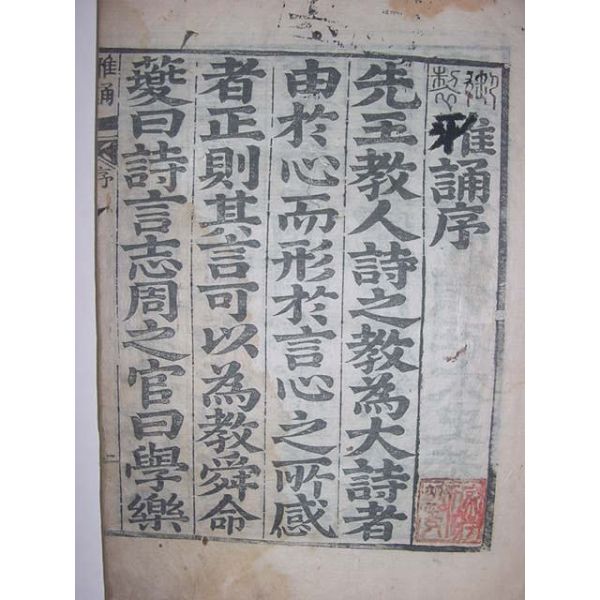 雅誦序
先王教人詩之教為大詩者
由於心而形於言心之所感
者正則其言可以為教舜命
夔曰詩言志周之官曰學樂
雅誦
序